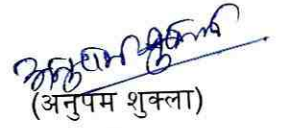 अनुपम शुक्ला
(अनुपम शुक्ला)